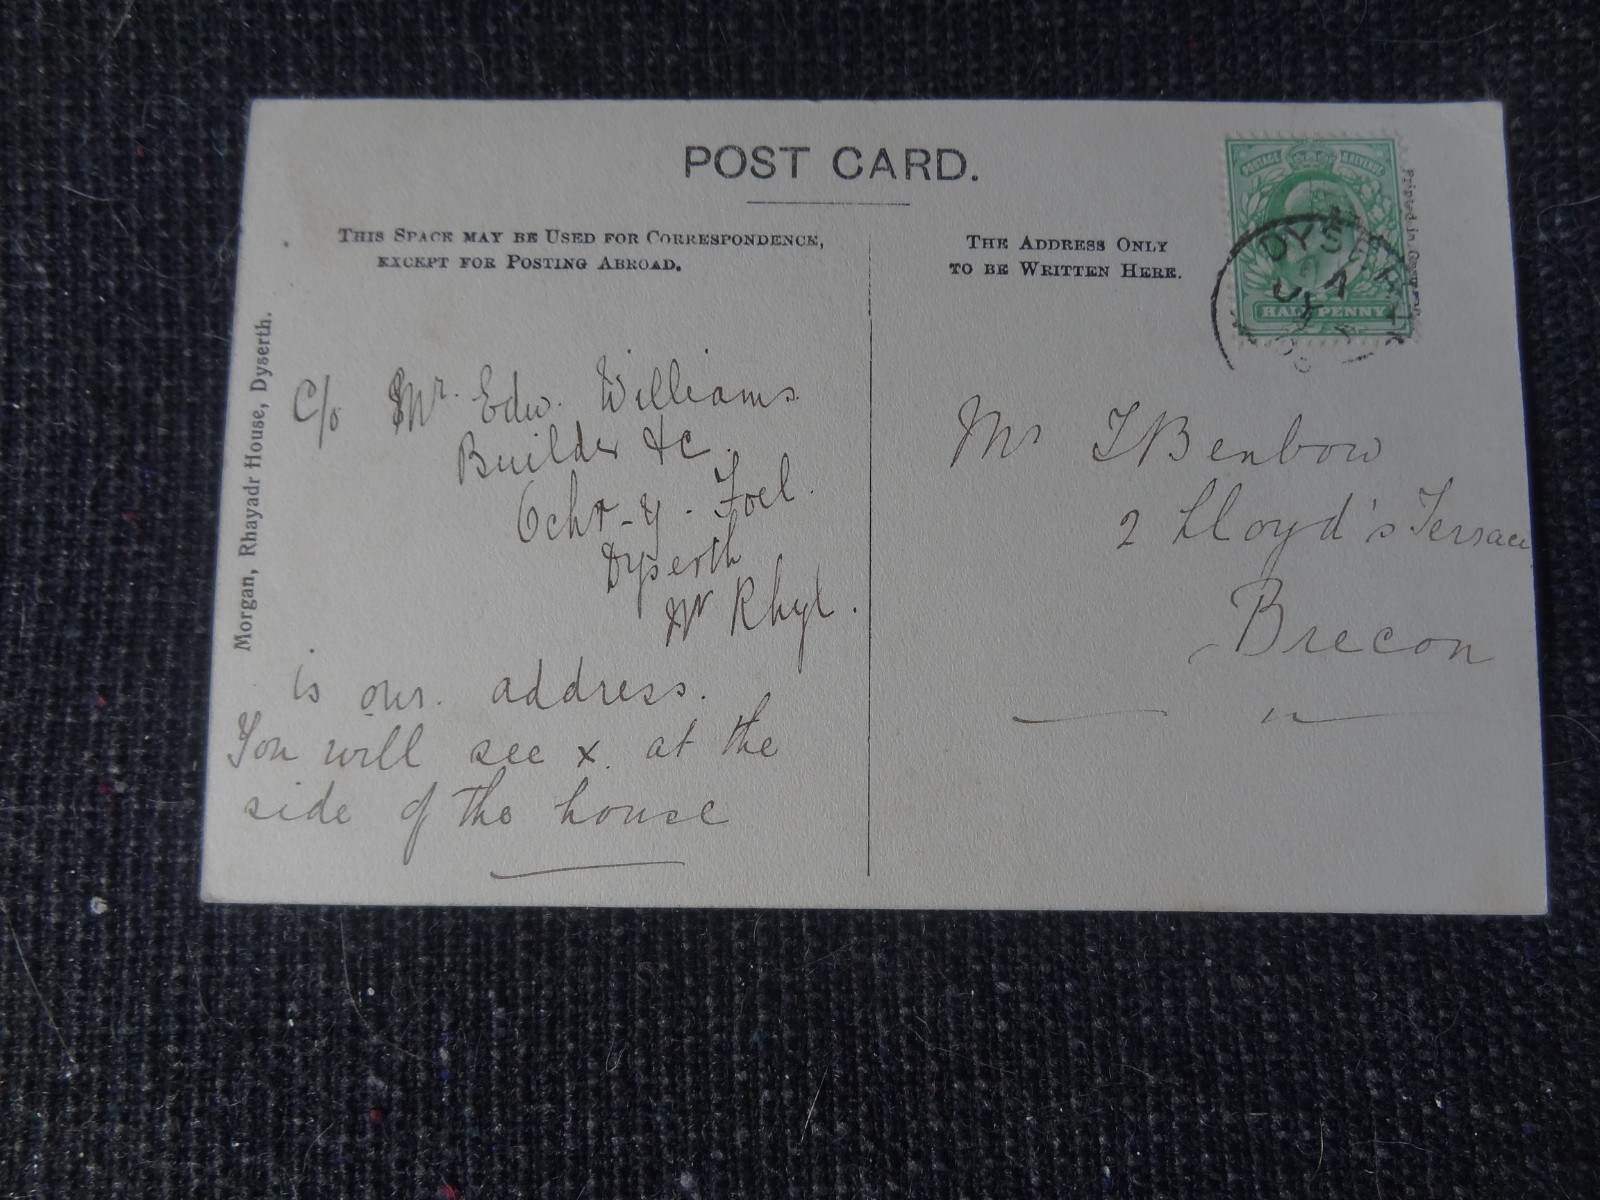 POST CARD.
THIS SPACE MAY BE USED FOR CORRESPONDENCE,
EXCEPT FOR POSTING ABROAD.
THE ADDRESS ONLY
TO BE WRITTEN HERE.
POSTAGE REVENUE
HALF PENNY
DYSERTH
Printed in
Morgan, Rhayadr House, Dyserth.
C/o Mr. Edw. Williams
Builder &c.
Ochr-y-Foel.
Dyserth
Nr Rhyl.
is our. address.
You will see x. at the
side of the house
Mr T Benbow
2 Lloyd's Terrace
Brecon